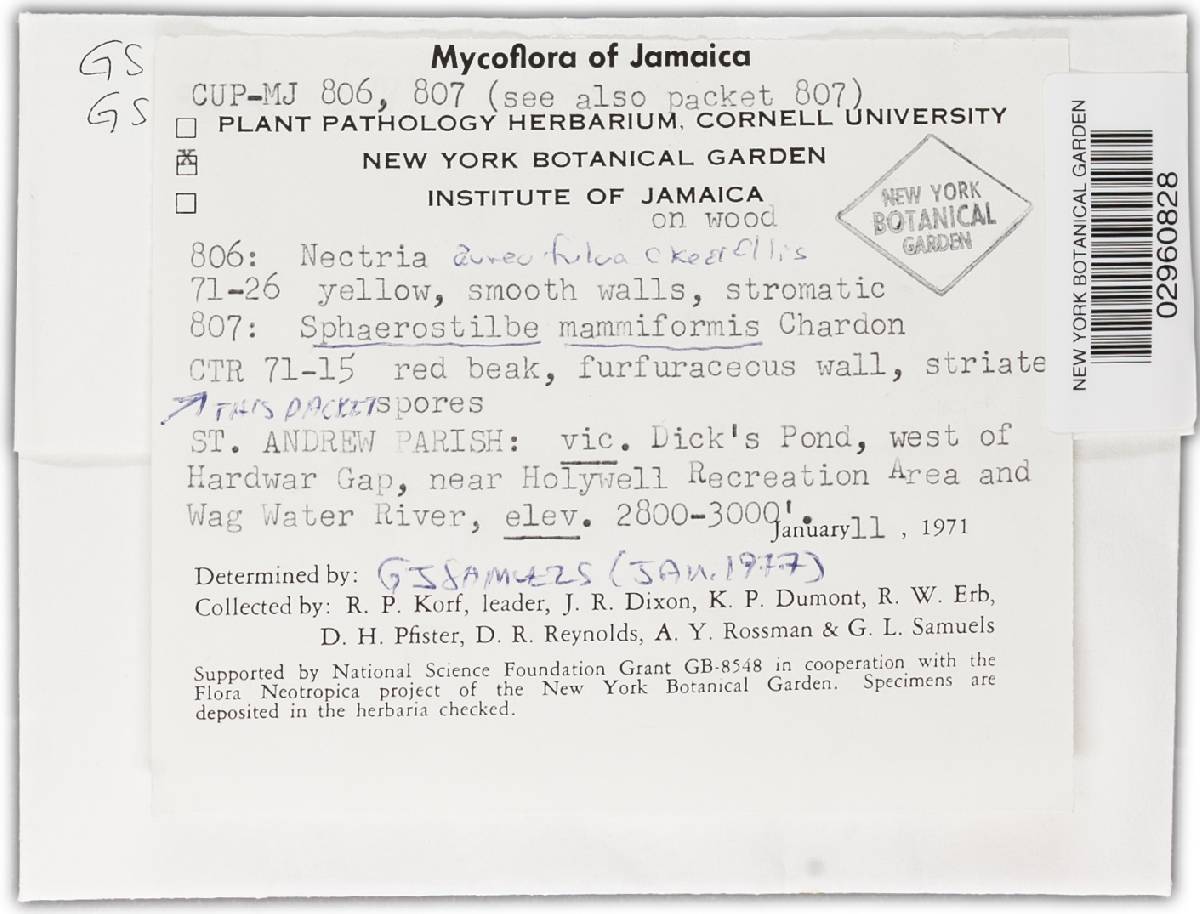 GS
GS
Mycoflora of Jamaica
CUP-MJ 806, 807 (see also packet 807)
PLANT PATHOLOGY HERBARIUM, CORNELL UNIVERSITY
NEW YORK BOTANICAL GARDEN
INSTITUTE OF JAMAICA
on wood
NEW YORK
BOTANICAL
GARDEN
806: Nectria aureofulva Cke & Ellis
71-26 yellow, smooth walls, stromatic
807: Sphaerostilbe mammiformis Chardon
CTR 71-15 red beak, furfuraceous wall, striate
THIS PACKET spores
ST. ANDREW PARISH: vic. Dick's Pond, west of
Hardwar Gap, near Holywell Recreation Area and
Wag Water River, elev. 2800-3000'.
January 11 , 1971
Determined by: GJ SAMUELS (JAN. 1977)
Collected by: R. P. Korf, leader, J. R. Dixon, K. P. Dumont, R. W. Erb,
D. H. Pfister, D. R. Reynolds, A. Y. Rossman & G. L. Samuels
Supported by National Science Foundation Grant GB-8548 in cooperation with the
Flora Neotropica project of the New York Botanical Garden. Specimens are
deposited in the herbaria checked.
NEW YORK BOTANICAL GARDEN
02960828